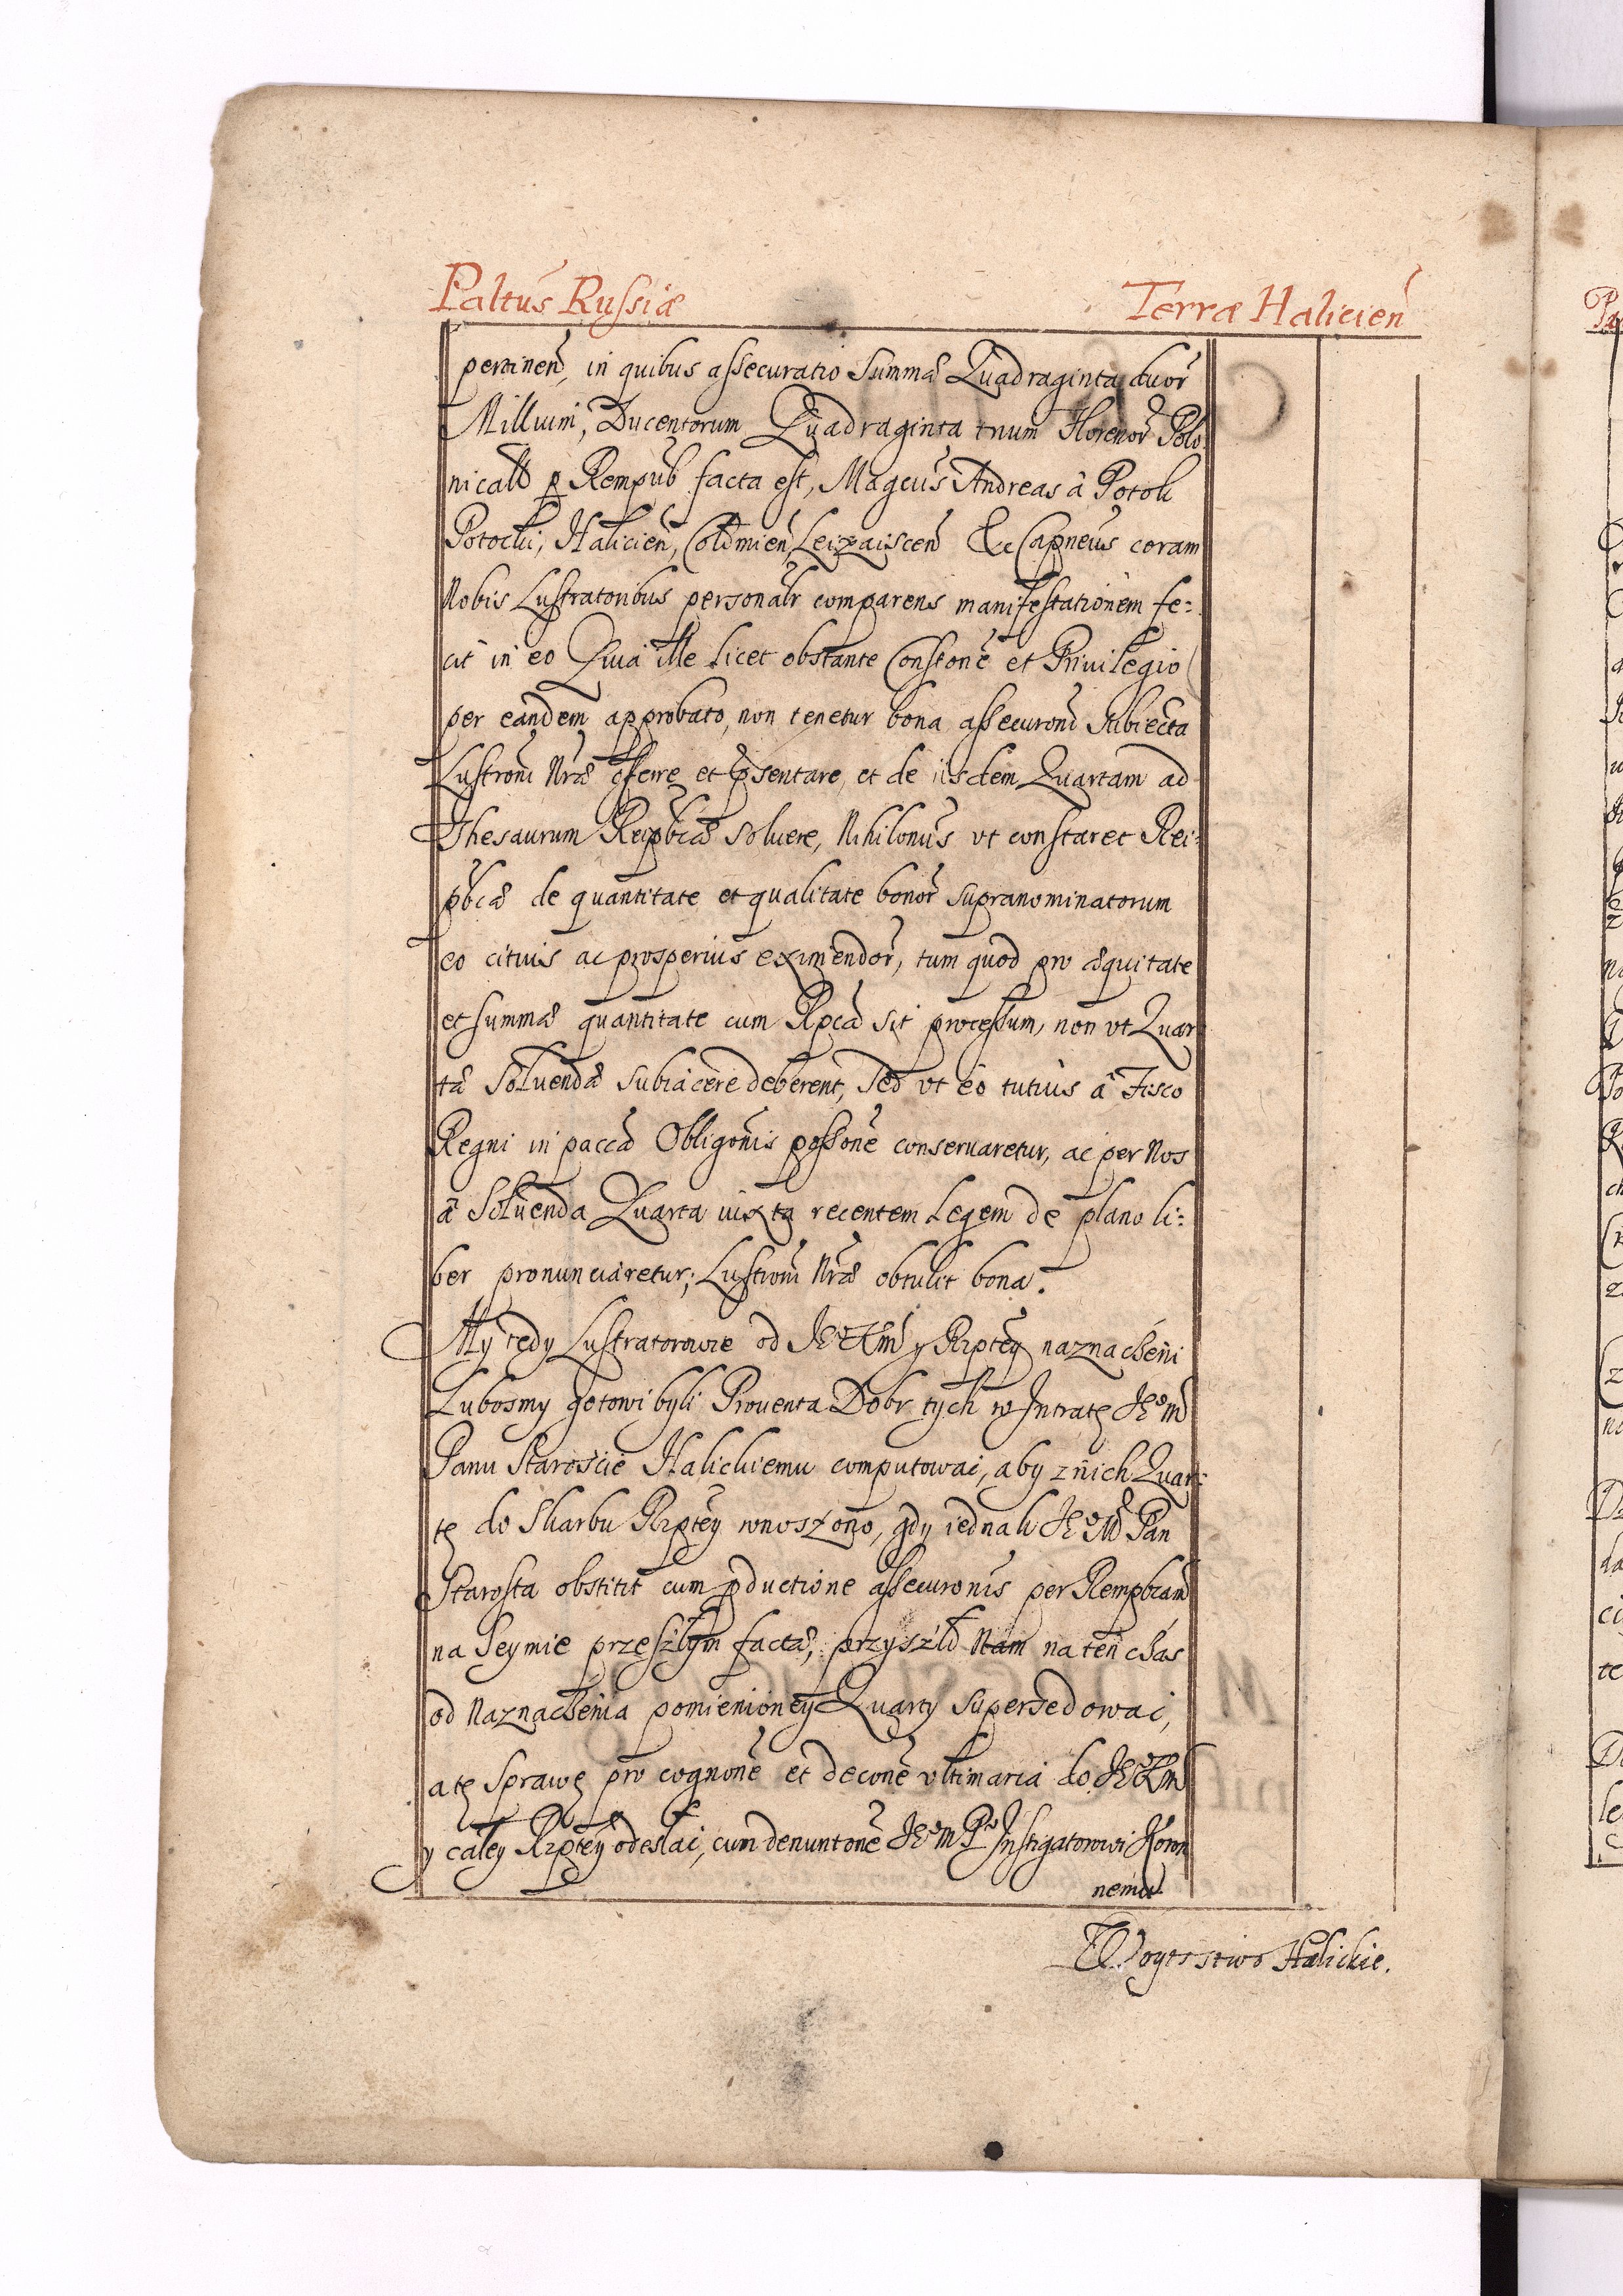 Paltus Russiæ
Terræ Halicień
pertineń, in quibus assecuratio Summæ Quadraginta duor
Millium, Ducentorum Quadraginta trium Florenor Polo
nicaliū p Rempub facta est, Magcus Andreas â Potok
Potocki, Halicień, Colomień, Leizaiscen &c Capneus coram
Nobis Lustratoribus personalr comparens manifestationem fe:
cit in eo Quia ille licet obstante Constone et Privilegio
per eandem approbato, non tenetur bona assecuroni Subiecta
Lustroni Nræ offerre et pśentare, et de iisdem Quartam ad
Thesaurum Reipbcæ Soluere, Nihilonus vt constaret Rei:
pbcæ de quantitate et qualitate bonor supranominatorum
eo citius ac prosperius eximendor, tum quod pro æquitate
et summæ quantitate cum Rpca sit processum, non vt Quar
tæ Soluendæ subiacere deberent, Sed vt eo tutius â Fisco
Regni in pacca Obligonis possone conseruaretur, ac per Nos
â Soluenda Quarta iuxta recentem Legem de plano li:
ber pronunciaretur; Lustroni Nræ obtulit bona.
My tedy Lustratorowie od JeoKm y Rzptey naznacheni
Lubosmy gotowi byli Prouenta Dobr tych w Intratę Jeom
Panu Staroście Halickiemu computowac, aby z nich Quar:
tę do Skarbu Rzptey wnoszono, gdy iednak Jeo M Pan
Starosta obstitit cum pductione assecuronis per Rempbcam
na Seymie przeszłym factæ, przyszło Nam na ten chás
od Naznachenia pomienioney Quarty Supersedowac,
a tę Sprawę pro cognone et decone vltimaria do JeoKm
y całey Rzptey odesłac, cum denuntone Jeo m Pu Instigatorowi Koron
nemu
Woytostwo Halickie.